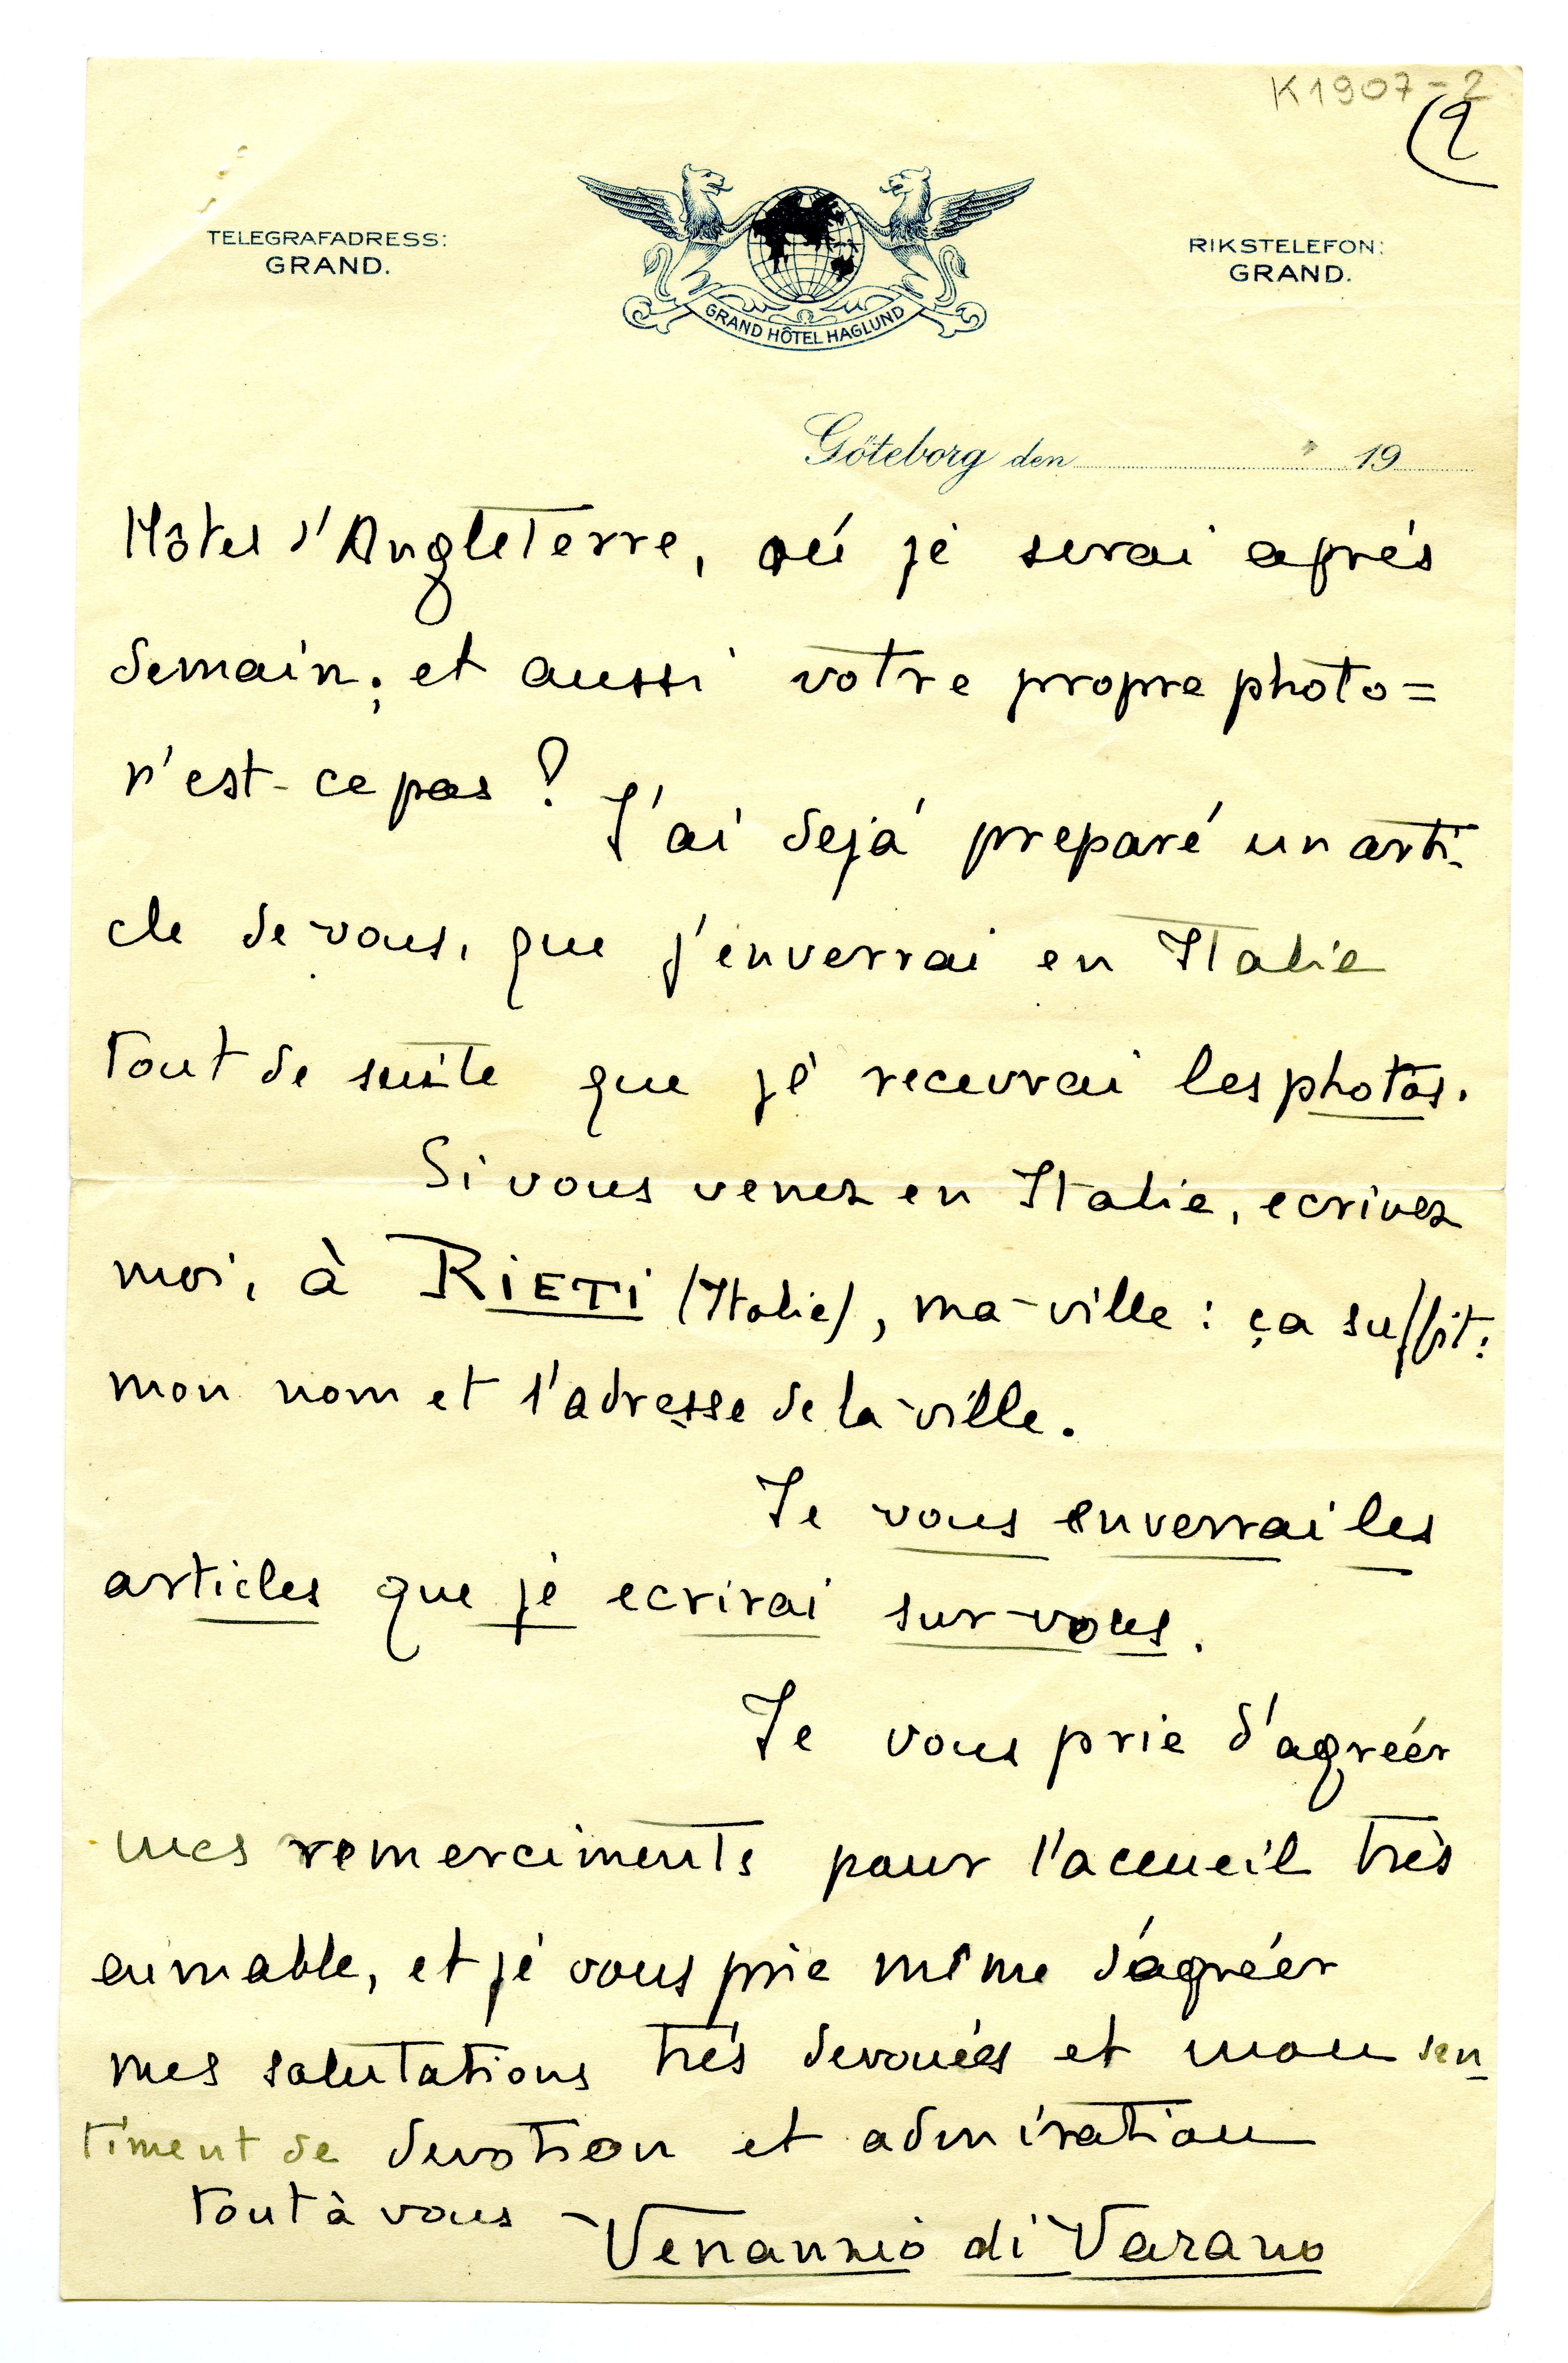 K1907-2
(2
TELEGRAFADRESS:
GRAND.
RIKSTELEFON:
GRAND.
GRAND HÔTEL HAGLUND
Göteborg den 19
Hôtel d'Angleterre, oú je serai aprés
demain; et aussi votre propre photo=
n'est-ce pas? J'ai dejá preparé un arti-
cle de vous, que j'enverrai en Italie
tout de suite que je recevrai les photos.
Si vous venez en Italie, ecrivez
moi, à RIETI (Italie), ma ville: ça suffit:
mon nom et l'adresse de la ville.
Je vous enverrai les
articles que je ecrirai sur vous.
Je vous prie d'agréér
mes remerciments pour l'accueil très
aimable, et je vous prie même d'agréér
mes salutations trés devouées et mon sen
timent de devotion et admiration
tout à vous Venanzio di Varano